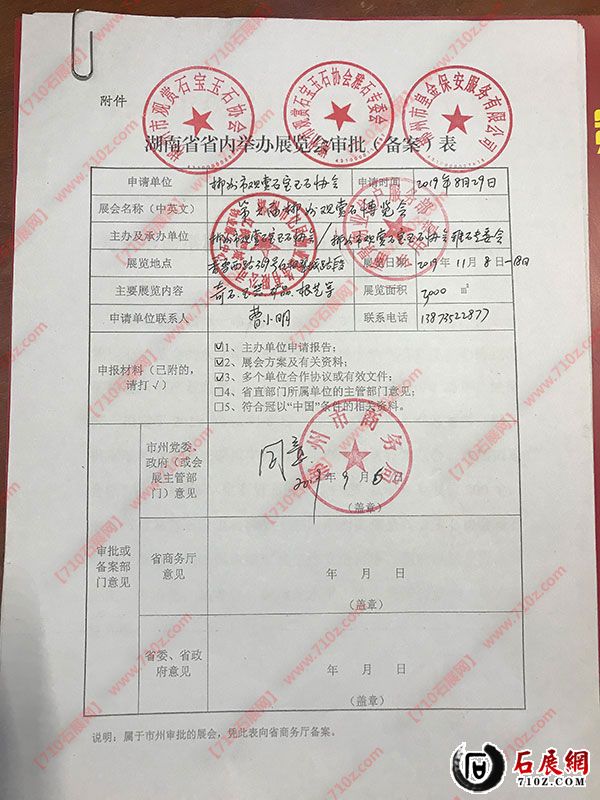 附件
湖南省省内举办展览会审批（备案）表
申请单位 郴州市观赏石宝玉石协会 申请时间 2019年8月29日
展会名称（中英文） 第六届郴州观赏石博览会
主办及承办单位 郴州市观赏石宝玉石协会/郴州市观赏石宝玉石协会雅石专委会
展览地点 展览日期 2019年11月8日-18日
主要展览内容 奇石 根艺等 展览面积 2000 m²
申请单位联系人 曹小明 联系电话 13873522877
申报材料（已附的，请打√）
☑1、主办单位申请报告；
☑2、展会方案及有关资料；
☑3、多个单位合作协议或有效文件；
□4、省直部门所属单位的主管部门意见；
□5、符合冠以“中国”条件的相关资料。
审批或备案部门意见
市州党委、政府（或会展主管部门）意见
同意
2019年9月5日
（盖章）
郴州市商务局
省商务厅意见
年 月 日
（盖章）
省委、省政府意见
年 月 日
（盖章）
说明：属于市州审批的展会，凭此表向省商务厅备案。
郴州市观赏石宝玉石协会
郴州市观赏石宝玉石协会雅石专委会
郴州市皇金保安服务有限公司
【710石展网】www.710z.com
石展網
710Z.COM